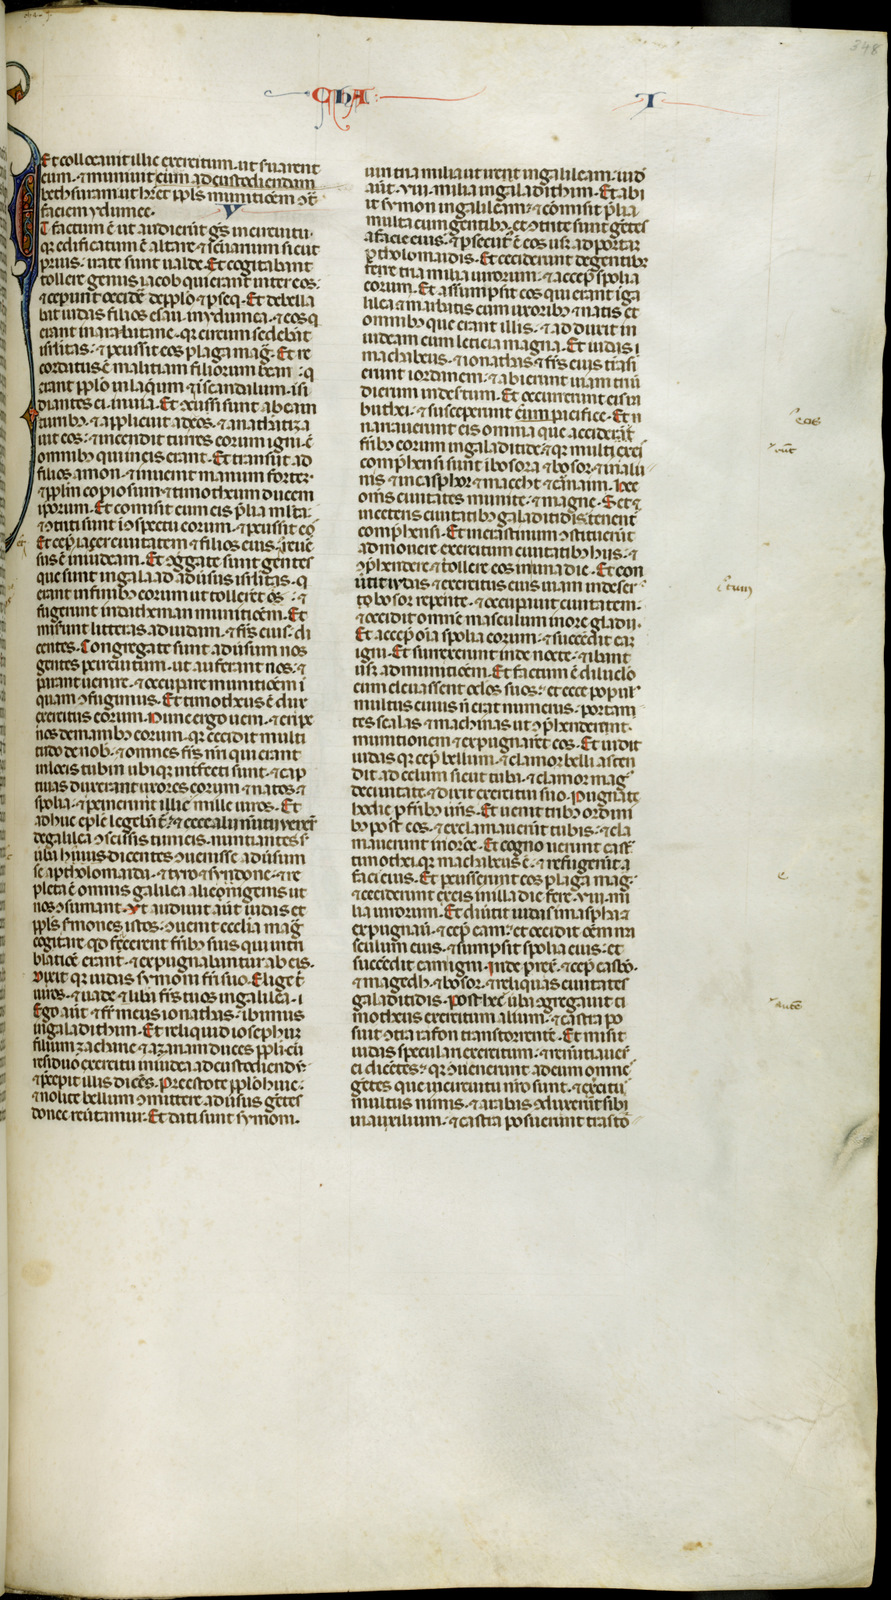 348
ChA I
Et collocauit illic exercitum ut seruarent
eum. ⁊ muniuit eum ad custodiendam
bethsuram. ut hr̄et ppl̄s munitiōem ꝯt̄
faciem ydumee. V
T factum ē ut audierūt gn̄s in circuitu.
qr edificatum ē altare ⁊ sc̄uarium sicut
prius. irate sunt ualde. Et cogitabant
tollere genus iacob qui erant inter eos.
⁊ ceperūt occidē de ppl̄o ⁊ pseq̄. Et debella
bat iudas filios esau in ydumea. ⁊ eos q
erant in arabitane. qr circumsedebāt
isrl̄itas. ⁊ ꝑcussit eos plaga mag̃. Et re
cordatus ē malitiam filiorum bean. q
erant ppl̄o in laq̄um ⁊ ī scandalum. īsi
diantes ei in uia. Et ꝯclusi sunt ab eo in
turribꝰ. ⁊ applicuit ad eos. ⁊ anathatiza
uit eos. ⁊ incendit turres eorum igni. c̄
omnibꝰ qui in eis erant. Et transiit ad
filios amon. ⁊ inuenit manum fortē.
⁊ ppl̄m copiosum. ⁊ timotheum ducem
ip̄orum. Et comisit cum eis p̄lia ml̄ta.
⁊ ꝯtriti sunt ī ꝯspectu eorum. ⁊ ꝑcussit eo᷒
Et cep̄ iaçer ciuitatem ⁊ filias eius. ⁊ reuē
sus ē in iudeam. Et ꝯg̃gate sunt gentes
que sunt in galaad aduersus isrl̄itas. q
erant in finibꝰ eorum ut tollerēt eos. ⁊
fugerunt in datheman munitiōem. Et
miserunt litteras ad iudam. ⁊ fr̄s eius. di
centes. Congregate sunt aduersum nos
gentes per circuitum. ut auferant nos. ⁊
parant uenire. ⁊ occupare munitiōem ī
quam ꝯfugimus. Et timotheus ē dux
exercitus eorum. Nunc ergo ueni. ⁊ eripe
nos de manibꝰ eorum. qr cecidit multi
tudo de nob. ⁊ omnes fr̄s nr̄i qui erant
in locis tubin ubiqꝫ interfecti sunt. ⁊ cap
tiuas duxerant uxores eorum ⁊ natos. ⁊
spolia. ⁊ peremerunt illic mille uiros. Et
adhuc ep̄le legebant᷑. ⁊ ecce alii nūtii uener̄t
de galilea ꝯscissis tunicis. nuntiantes s
ūba huius dicentes ꝯuenisse aduersum
se a ptholomaida. ⁊ tyro ⁊ syndone. ⁊ re
pleta ē omnis galilea alienigenis ut
nos ꝯsumant. Vt audiuit aūt iudas et
ppl̄s sermones istos. ꝯuenit ecclia mag̃
cogitare qd facerent fr̄ibꝰ suis qui in tri
blatiōe erant. ⁊ expugnabantur ab eis.
Dixit qꝫ iudas symoni fr̄i suo. Elige t
uiros. ⁊ uade ⁊ libera fr̄s tuos in galilea. i
Ego aūt ⁊ fr̄ meus ionathas. ibimus
in galadithim. Et reliquid iosephum
filium zacharie. ⁊ azariam duces ppl̄i cū
residuo exercitu in iudea ad custodiendū.
⁊ p̄cepit illis dicēs. Preestote ppl̄o huic.
⁊ nolite bellum ꝯmittere aduersus gētes
donec reuertamur. Et dati sunt symoni.
uiri tria milia ut irent in galileam. iud
aūt. viii. milia in galadithim. Et abi
it symon in galileam. ⁊ cōmisit p̄lia
multa cum gentibꝰ. et ꝯtrite sunt gētes
a facie eius. ⁊ ꝑsecut᷒ ē eos usqꝫ ad portam
ptholomaidis. Et ceciderunt de gentibꝰ
fere tria milia uirorum. ⁊ accep̄ spolia
corum. Et assumpsit eos qui erant ī ga
lilea ⁊ in arbatis cum uxoribꝰ ⁊ natis et
omnibꝰ que erant illis. ⁊ adduxit in
iudeam cum leticia magna. Et iudas ī
machabeus. ⁊ ionathas ⁊ fr̄s eius trāsi
erunt iordanem. ⁊ abierunt uiam triū
dierum in desertum. Et occurrerunt eis na
buthei. ⁊ susceperunt eum pacifice. Et n
narrauerunt eis omnia que acciderāt
fr̄ibꝰ eorum in galaditide. ⁊ qr multi ex eis
comp̄hensi sunt ī bosora ⁊ bosor. ⁊ in ali
mis ⁊ in casphor ⁊ maceht ⁊ carnaim. hec
om̄s ciuitates munite. ⁊ magne. Set ⁊
in ceteris ciuitatibꝰ galaditidis tenent᷑
comp̄hensi. Et in crastinum ꝯstituerūt
admouere exercitum ciuitatibꝰ hiis. ⁊
ꝯp̄hendere ⁊ tollere eos in una die. Et con
uertit iudas ⁊ exercitus eius uiam in deser
to bosor repente. ⁊ occupauit ciuitatem.
⁊ occidit omnē masculum in ore gladii.
Et accep̄ oīa spolia eorum. ⁊ succēdit eā
igni. Et surrexerunt inde nocte. ⁊ ibant
usqꝫ ad munitiōem. Et factum ē diluculo
cum eleuassent oc̄los suos. et ecce popul᷒
multus cuius ñ erat numerus. portan
tes scalas ⁊ machinas ut ꝯp̄henderent
munitionem ⁊ expugnarēt eos. Et uidit
iudas qr cep̄ bellum. ⁊ clamor belli ascen
dit ad celum sicut tuba. ⁊ clamor mag᷒
de ciuitate. ⁊ dixit exercitui suo. Pugnate
hodie p fr̄ibꝰ ur̄is. Et uenit tribꝰ ordini
bꝰ post eos. ⁊ exclamauerūt tubis. ⁊ cla
mauerunt in orōe. Et cognouerunt cast᷑
timothei. qr machabeus ē. ⁊ refugerūt a
facie eius. Et percusserunt eos plaga mag.
⁊ ceciderunt ex eis in illa die fere. viii. mi
lia uirorum. Et diuertit iudas in maspha. ⁊
expugnauit. ⁊ cep̄ eam. et occidit oēm ma
sculum eius. ⁊ sumpsit spolia eius. et
succēdit eam igni. Inde prex̄. ⁊ cep̄ casbō.
⁊ mageth. ⁊ bosor. ⁊ reliquas ciuitates
galaditidis. Post hec ūba ꝯgregauit ti
motheus exercitum alium. ⁊ castra po
suit ꝯtra rafon trans torrentē. Et misit
iudas speculari exercitum. ⁊ renūtiauer̄
ei dicētes. qr ꝯuenerunt ad eum omnes
gētes que in circuitu nr̄o sunt. ⁊ exercit᷒
multus nimis. ⁊ arabas ꝯduxerūt sibi
in auxilium. ⁊ castra posuerunt trās tō
eos
rūt
tum
c
autē